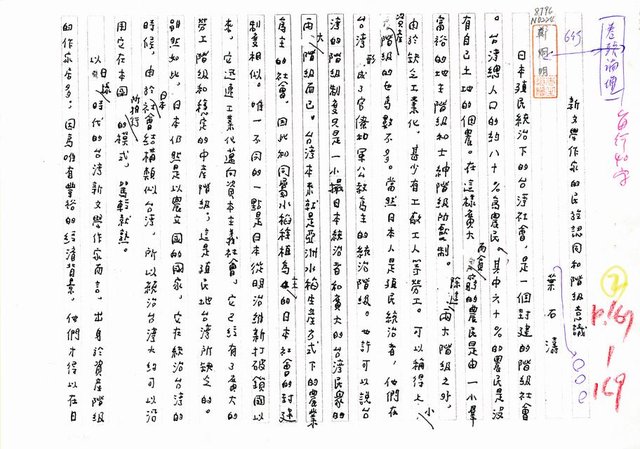 卷頭論壇
每行40字
645
鄭烱明
②
P.167
|
169
新文學作家的民族認同和階級意識
葉石濤
日本殖民統治下的台灣社會，是一個封建的階級社會
。台灣總人口的約八十%為農民，其中六十%的農民是沒
有自己土地的佃農。在這樣貧大而貧窮的農民是由一小羣
富裕的地主階級和士紳階級所壓制。除這兩大階級之外，
由於缺乏工業化，甚少有工人等勞工。可以稱得上小
資產階級的也為數不多。當然日本人是殖民統治者，他們在
台灣，形成了官僚和軍公教為主的統治階級。也許可以說台
灣的階級制度只是一小撮日本統治者和廣大的台灣民眾的
兩大階級而已。台灣本來就是亞洲水稻生產方式下的農業
為主的社會，因此和同屬水稻種植為主的日本社會的封建
制度相似。唯一不同的一點是日本從明治維新打破鎖國以
來，它迅速工業化邁向資本主義社會，它已經有了龐大的
勞工階級和穩定的中產階級，這是殖民地台灣所缺乏的。
雖然如此，日本仍然是以農立國的國家，它在統治台灣的
時候，由於日本社會結構類似台灣，所以統治台灣大約可以沿
用它在本國所推行的模式，駕輕就熟。
以日據時代的台灣新文學作家而言，出身於資產階級
的作家居多，因為唯有豐裕的經濟背景，他們才得以在日